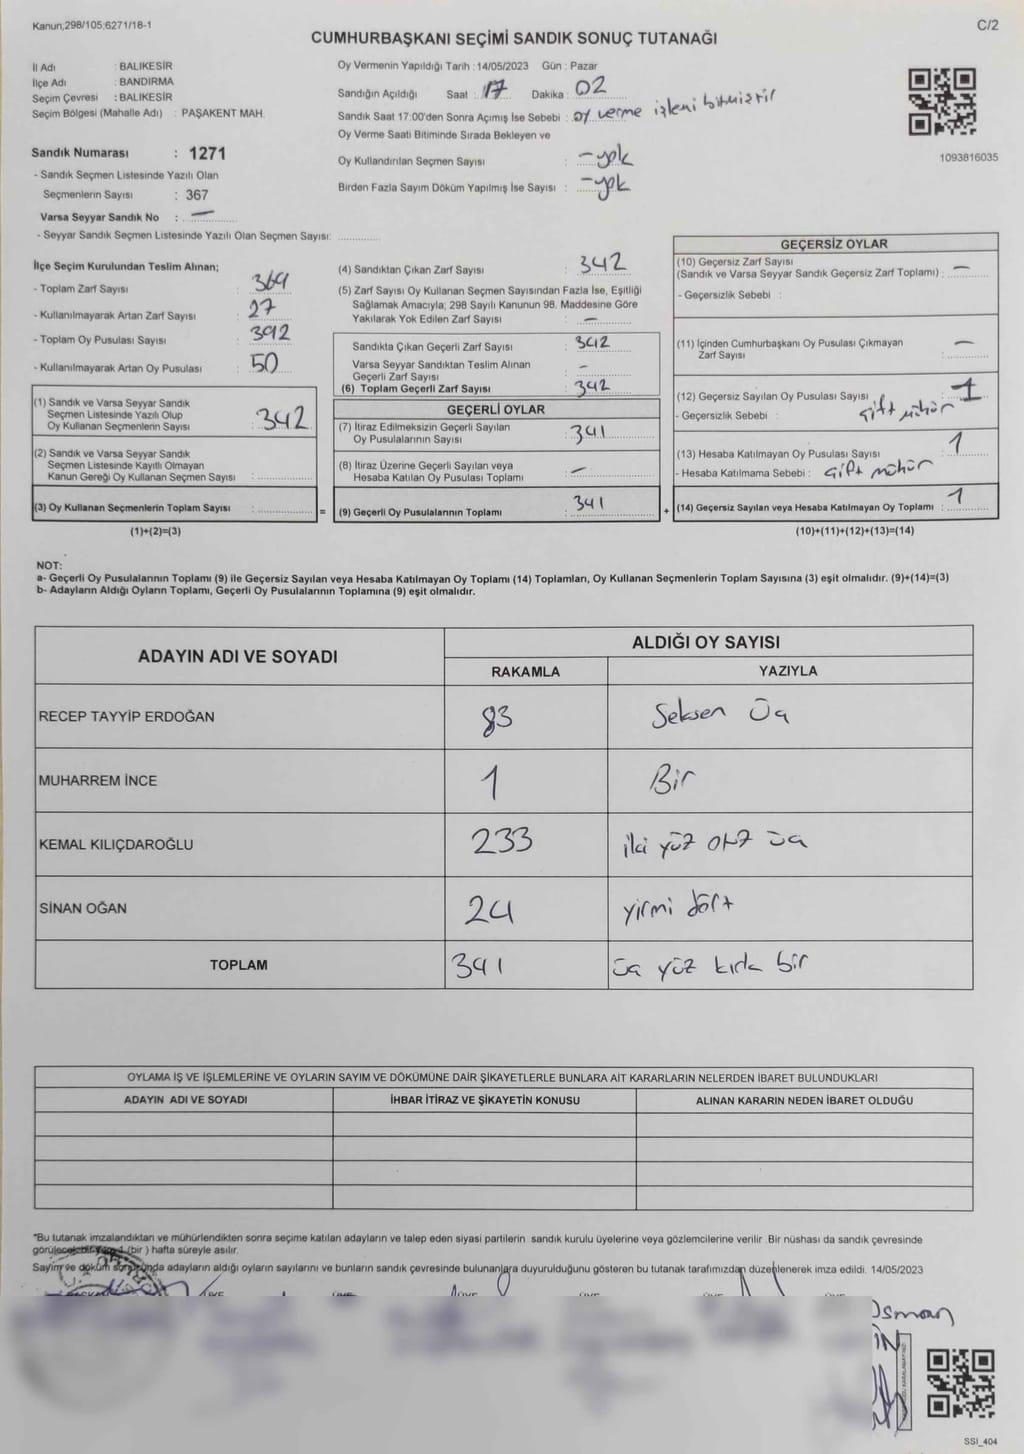 Kanun,298/105,6271/18-1
C/2
CUMHURBAŞKANI SEÇİMİ SANDIK SONUÇ TUTANAĞI
İl Adı : BALIKESİR
İlçe Adı : BANDIRMA
Seçim Çevresi : BALIKESİR
Seçim Bölgesi (Mahalle Adı) : PAŞAKENT MAH.
Sandık Numarası : 1271
- Sandık Seçmen Listesinde Yazılı Olan
Seçmenlerin Sayısı : 367
Varsa Seyyar Sandık No : —
- Seyyar Sandık Seçmen Listesinde Yazılı Olan Seçmen Sayısı: ............
Oy Vermenin Yapıldığı Tarih : 14/05/2023 Gün : Pazar
Sandığın Açıldığı Saat : 17 Dakika : 02
Sandık Saat 17:00'den Sonra Açımış İse Sebebi : oy verme işlemi bitmiştir
Oy Verme Saati Bitiminde Sırada Bekleyen ve
Oy Kullandırılan Seçmen Sayısı : -yok
Birden Fazla Sayım Döküm Yapılmış İse Sayısı : -yok
1093816035
İlçe Seçim Kurulundan Teslim Alınan;
- Toplam Zarf Sayısı : 369
- Kullanılmayarak Artan Zarf Sayısı : 27
- Toplam Oy Pusulası Sayısı : 392
- Kullanılmayarak Artan Oy Pusulası : 50
(1) Sandık ve Varsa Seyyar Sandık
Seçmen Listesinde Yazılı Olup
Oy Kullanan Seçmenlerin Sayısı : 342
(2) Sandık ve Varsa Seyyar Sandık
Seçmen Listesinde Kayıtlı Olmayan
Kanun Gereği Oy Kullanan Seçmen Sayısı :
(3) Oy Kullanan Seçmenlerin Toplam Sayısı : =
(1)+(2)=(3)
(4) Sandıktan Çıkan Zarf Sayısı : 342
(5) Zarf Sayısı Oy Kullanan Seçmen Sayısından Fazla İse, Eşitliği
Sağlamak Amacıyla; 298 Sayılı Kanunun 98. Maddesine Göre
Yakılarak Yok Edilen Zarf Sayısı : —
Sandıkta Çıkan Geçerli Zarf Sayısı : 342
Varsa Seyyar Sandıktan Teslim Alınan
Geçerli Zarf Sayısı : -
(6) Toplam Geçerli Zarf Sayısı : 342
GEÇERLİ OYLAR
(7) İtiraz Edilmeksizin Geçerli Sayılan
Oy Pusulalarının Sayısı : 341
(8) İtiraz Üzerine Geçerli Sayılan veya
Hesaba Katılan Oy Pusulası Toplamı : —
(9) Geçerli Oy Pusulalarının Toplamı : 341 +
GEÇERSİZ OYLAR
(10) Geçersiz Zarf Sayısı
(Sandık ve Varsa Seyyar Sandık Geçersiz Zarf Toplamı) : —
- Geçersizlik Sebebi :
(11) İçinden Cumhurbaşkanı Oy Pusulası Çıkmayan
Zarf Sayısı : —
(12) Geçersiz Sayılan Oy Pusulası Sayısı : 1
- Geçersizlik Sebebi : Çift mühür
(13) Hesaba Katılmayan Oy Pusulası Sayısı : 1
- Hesaba Katılmama Sebebi : Çift mühür
(14) Geçersiz Sayılan veya Hesaba Katılmayan Oy Toplamı : 1
(10)+(11)+(12)+(13)=(14)
NOT:
a- Geçerli Oy Pusulalarının Toplamı (9) ile Geçersiz Sayılan veya Hesaba Katılmayan Oy Toplamı (14) Toplamları, Oy Kullanan Seçmenlerin Toplam Sayısına (3) eşit olmalıdır. (9)+(14)=(3)
b- Adayların Aldığı Oyların Toplamı, Geçerli Oy Pusulalarının Toplamına (9) eşit olmalıdır.
ADAYIN ADI VE SOYADI
ALDIĞI OY SAYISI
RAKAMLA YAZIYLA
RECEP TAYYİP ERDOĞAN 83 Seksen Üç
MUHARREM İNCE 1 Bir
KEMAL KILIÇDAROĞLU 233 iki yüz otuz üç
SİNAN OĞAN 24 yirmi dört
TOPLAM 341 üç yüz kırk bir
OYLAMA İŞ VE İŞLEMLERİNE VE OYLARIN SAYIM VE DÖKÜMÜNE DAİR ŞİKAYETLERLE BUNLARA AİT KARARLARIN NELERDEN İBARET BULUNDUKLARI
ADAYIN ADI VE SOYADI İHBAR İTİRAZ VE ŞİKAYETİN KONUSU ALINAN KARARIN NEDEN İBARET OLDUĞU
"Bu tutanak imzalandıktan ve mühürlendikten sonra seçime katılan adayların ve talep eden siyasi partilerin sandık kurulu üyelerine veya gözlemcilerine verilir .Bir nüshası da sandık çevresinde
görülecek bir yere 1 (bir ) hafta süreyle asılır.
Sayım ve döküm sonucunda adayların aldığı oyların sayılarını ve bunların sandık çevresinde bulunanlara duyurulduğunu gösteren bu tutanak tarafımızdan düzenlenerek imza edildi. 14/05/2023
Osman
SSI_404